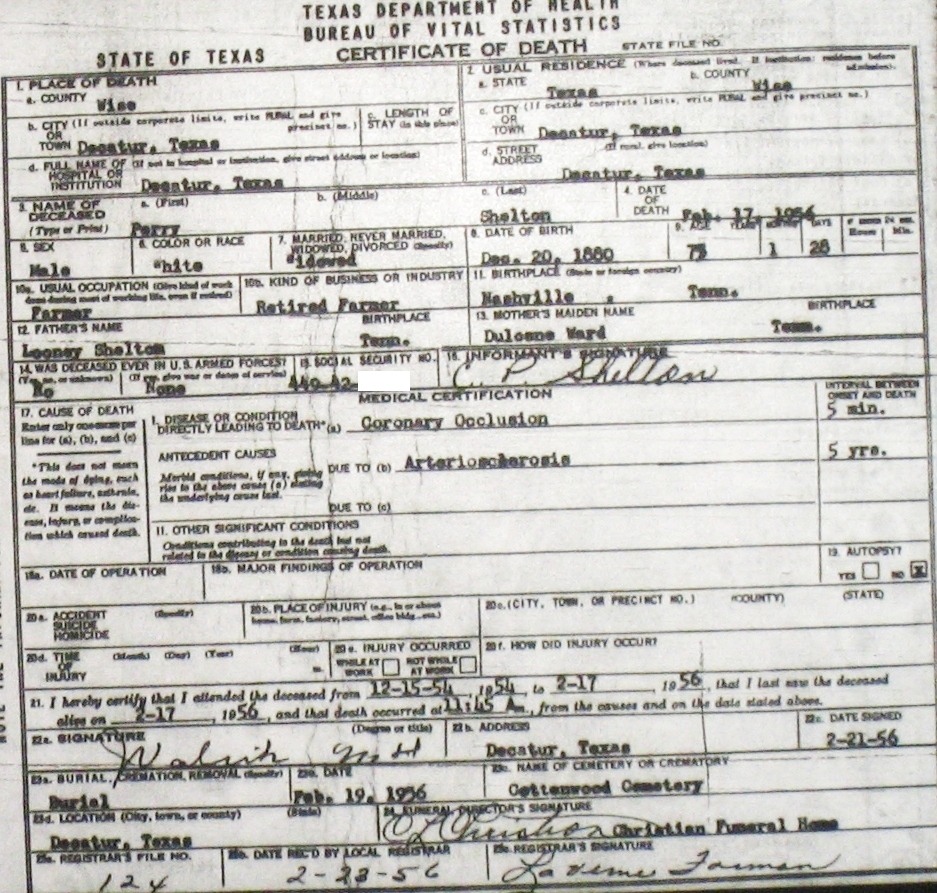 TEXAS DEPARTMENT OF HEALTH
BUREAU OF VITAL STATISTICS
STATE OF TEXAS CERTIFICATE OF DEATH STATE FILE NO.
1. PLACE OF DEATH
a. COUNTY Wise
2. USUAL RESIDENCE (Where deceased lived. If institution: residence before admission).
a. STATE Texas b. COUNTY Wise
b. CITY (If outside corporate limits, write RURAL and give precinct no.)
OR
TOWN Decatur, Texas
c. LENGTH OF
STAY (in this place)
c. CITY (If outside corporate limits, write RURAL and give precinct no.)
OR
TOWN Decatur, Texas
d. FULL NAME OF (If not in hospital or institution, give street address or location)
HOSPITAL OR
INSTITUTION Decatur, Texas
d. STREET (If rural, give location)
ADDRESS
Decatur, Texas
3. NAME OF
DECEASED
(Type or Print)
a. (First) Perry
b. (Middle)
c. (Last) Shelton
4. DATE
OF
DEATH Feb. 17, 1956
5. SEX Male
6. COLOR OR RACE White
7. MARRIED, NEVER MARRIED,
WIDOWED, DIVORCED (Specify)
Widowed
8. DATE OF BIRTH
Dec. 20, 1880
9. AGE YEARS MONTHS DAYS
75 1 28
IF UNDER 24 HRS.
Hours Min.
10a. USUAL OCCUPATION (Give kind of work
done during most of working life, even if retired)
Farmer
10b. KIND OF BUSINESS OR INDUSTRY
Retired Farmer
11. BIRTHPLACE (State or foreign country)
Nashville , Tenn.
12. FATHER'S NAME BIRTHPLACE
Looney Shelton Tenn.
13. MOTHER'S MAIDEN NAME BIRTHPLACE
Dulcene Ward Tenn.
14. WAS DECEASED EVER IN U.S. ARMED FORCES?
(Yes, no, or unknown) (If yes, give war or dates of service)
No None
15. SOCIAL SECURITY NO.
449-42-
16. INFORMANT'S SIGNATURE
C. P. Shelton
MEDICAL CERTIFICATION
INTERVAL BETWEEN
ONSET AND DEATH
17. CAUSE OF DEATH
Enter only one cause per
line for (a), (b), and (c)
*This does not mean
the mode of dying, such
as heart failure, asthenia,
etc. It means the dis-
ease, injury, or complica-
tion which caused death.
I. DISEASE OR CONDITION
DIRECTLY LEADING TO DEATH* (a) Coronary Occlusion 5 min.
ANTECEDENT CAUSES
Morbid conditions, if any, giving
rise to the above cause (a) stating
the underlying cause last.
DUE TO (b) Arteriosclerosis 5 yrs.
DUE TO (c)
11. OTHER SIGNIFICANT CONDITIONS
Conditions contributing to the death but not
related to the disease or condition causing death.
18a. DATE OF OPERATION
18b. MAJOR FINDINGS OF OPERATION
19. AUTOPSY?
YES NO X
20a. ACCIDENT (Specify)
SUICIDE
HOMICIDE
20b. PLACE OF INJURY (e.g., in or about
home, farm, factory, street, office bldg., etc.)
20c. (CITY, TOWN, OR PRECINCT NO.) (COUNTY) (STATE)
20d. TIME (Month) (Day) (Year) (Hour)
OF
INJURY m.
20e. INJURY OCCURRED
WHILE AT
WORK
NOT WHILE
AT WORK
20f. HOW DID INJURY OCCUR?
21. I hereby certify that I attended the deceased from 12-15-54, 1954, to 2-17, 1956, that I last saw the deceased
alive on 2-17, 1956, and that death occurred at 11:45 Am., from the causes and on the date stated above.
22a. SIGNATURE (Degree or title)
22b. ADDRESS
Decatur, Texas
22c. DATE SIGNED
2-21-56
23a. BURIAL, CREMATION, REMOVAL (Specify)
Burial
23b. DATE
Feb. 19, 1956
23c. NAME OF CEMETERY OR CREMATORY
Cottonwood Cemetery
23d. LOCATION (City, town, or county) (State)
Decatur, Texas
24. FUNERAL DIRECTOR'S SIGNATURE
Christian Funeral Home
25a. REGISTRAR'S FILE NO.
124
25b. DATE REC'D BY LOCAL REGISTRAR
2-23-56
25c. REGISTRAR'S SIGNATURE